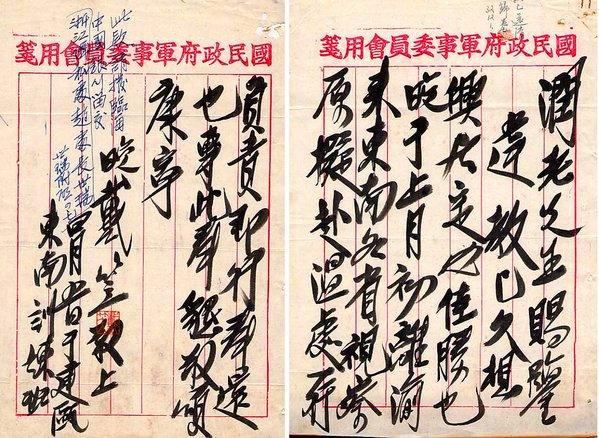 國民政府軍事委員會用箋
潤老先生賜鑒
違教已久想
興居定必佳勝也
晚于上月初離渝
來東南各省視察
原擬赴溫處一行
國民政府軍事委員會用箋
負責即行奉還
也專此奉懇敬頌
康
晚戴笠敬上
四月日于建甌
東南訓練班
中國銀行
浙江趙處長世瑞